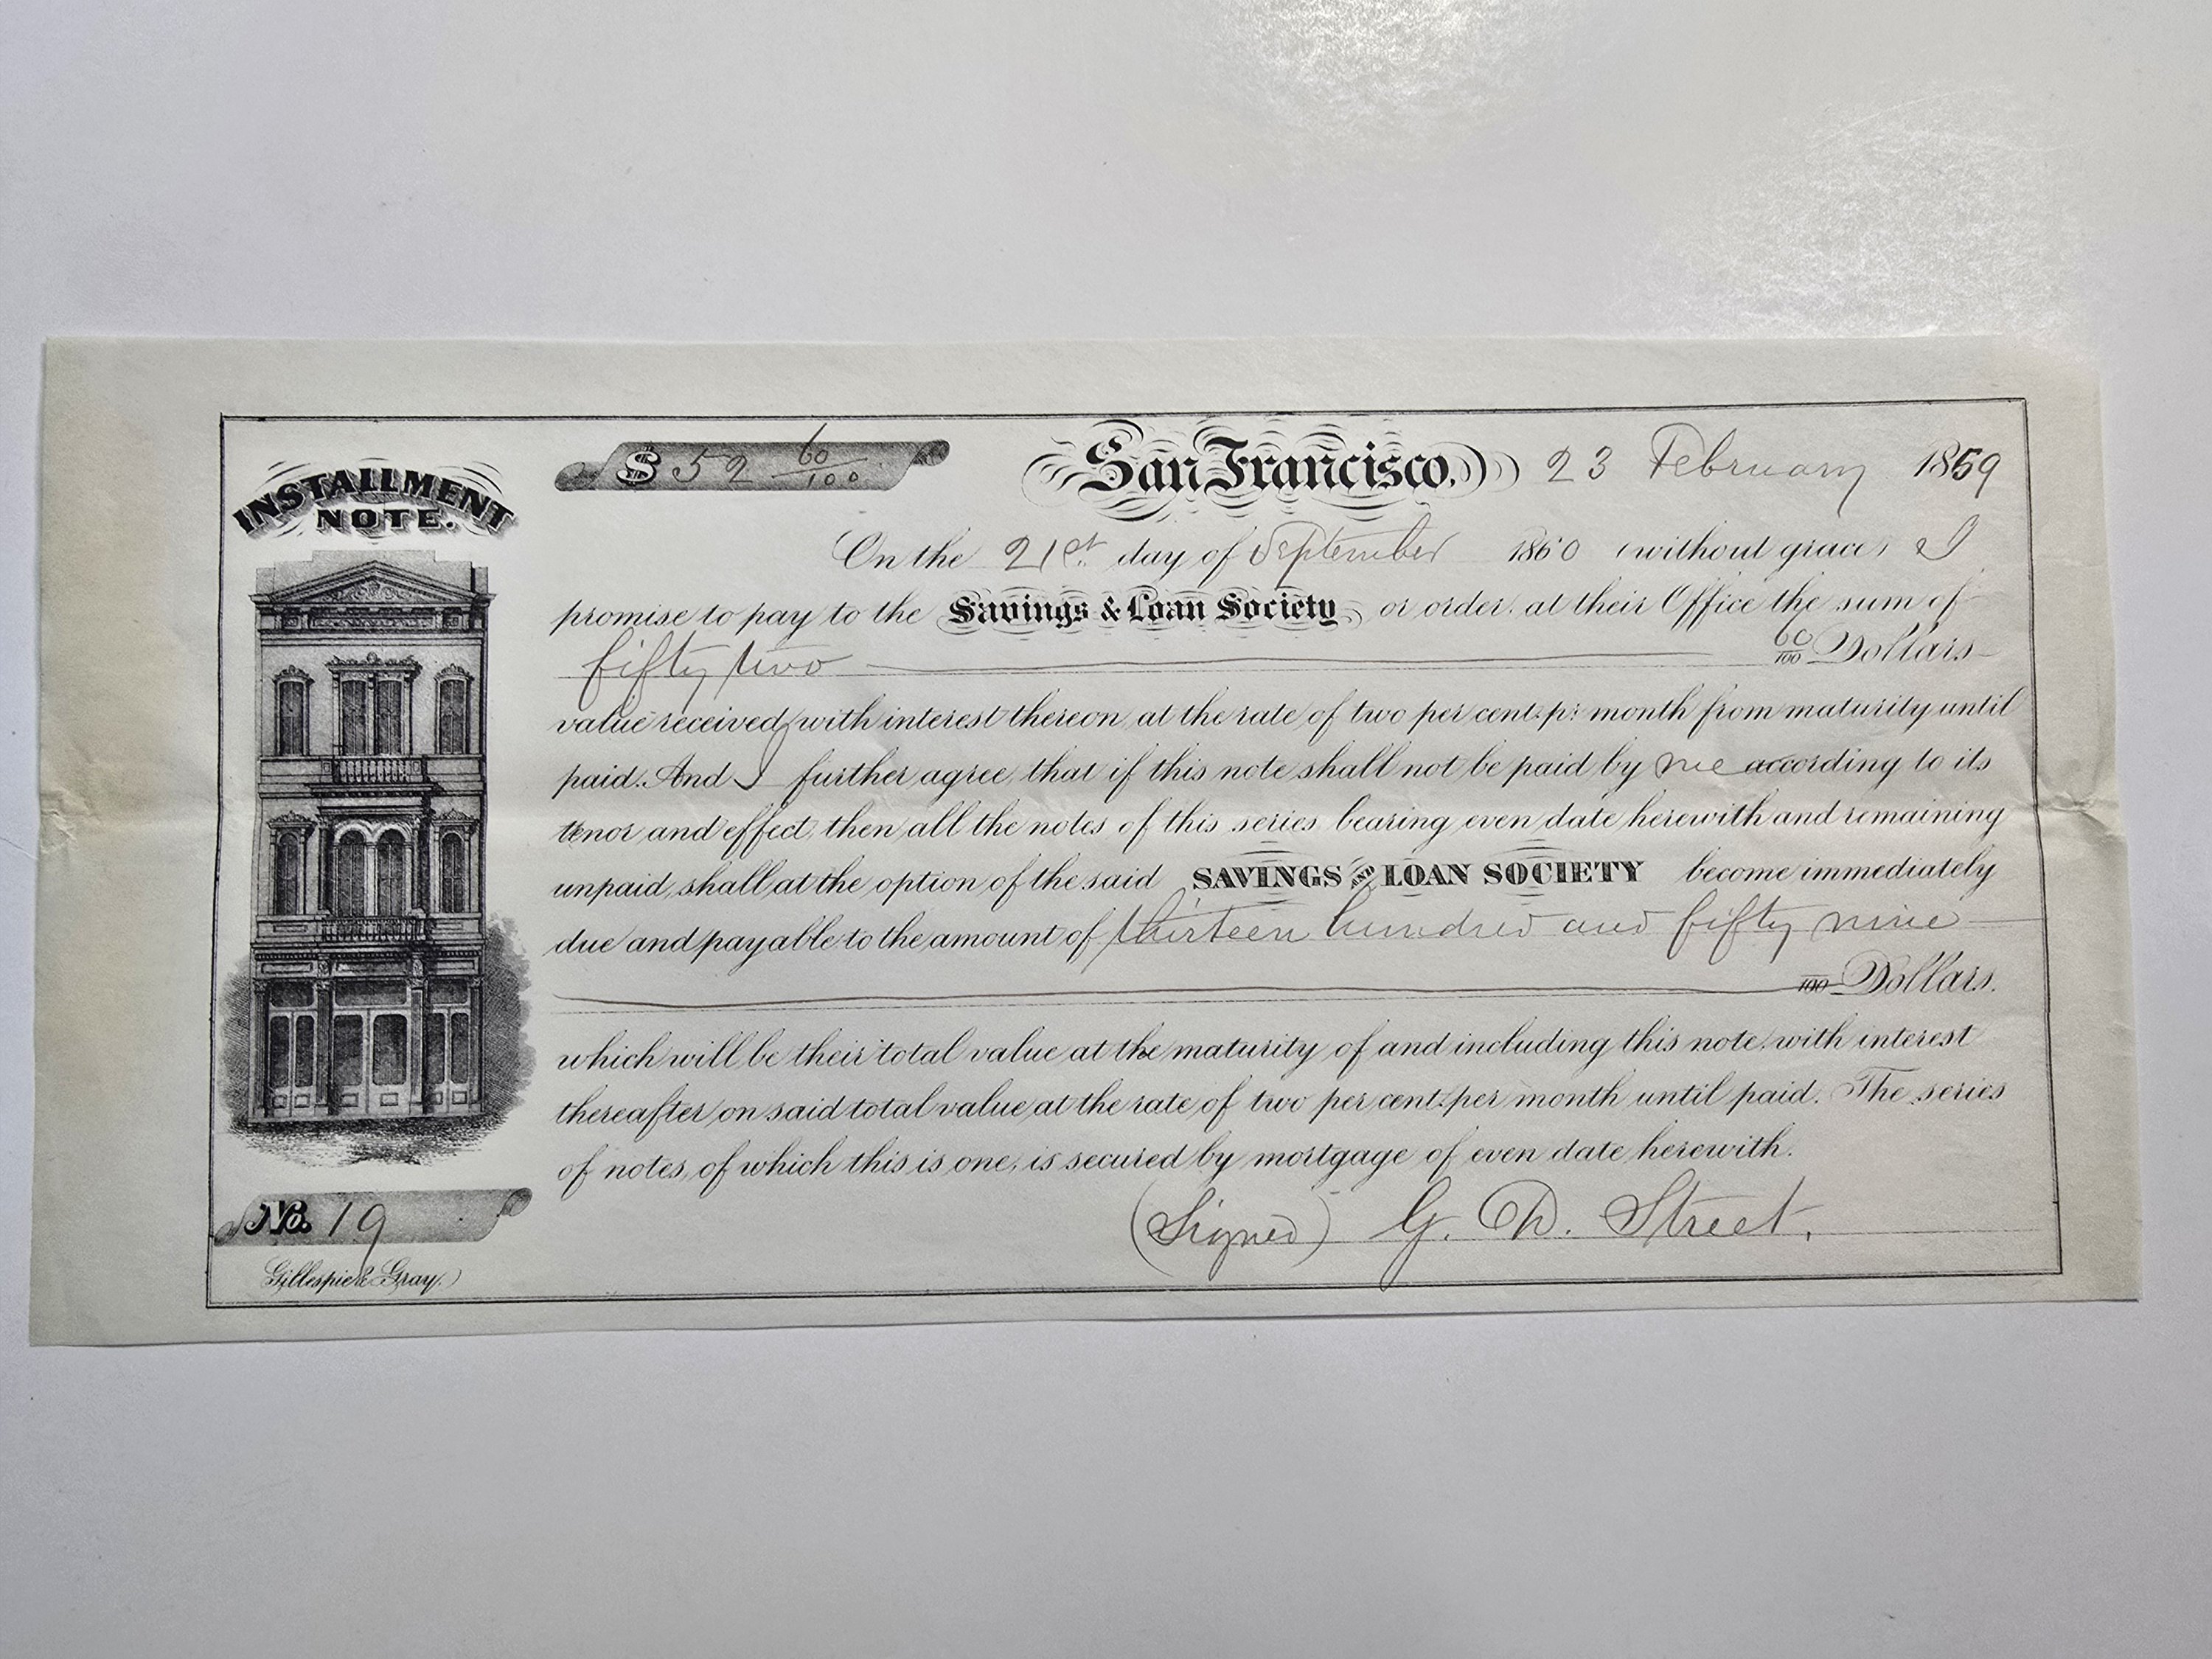 INSTALLMENT
NOTE.
$ 52 60/100
San Francisco. 23 February 1859
On the 21st day of September 1860 (without grace) I
promise to pay to the Savings & Loan Society, or order at their Office the sum of
fifty two 60/100 Dollars
value received, with interest thereon, at the rate of two per cent. pr. month from maturity until
paid. And I further agree, that if this note shall not be paid by me according to its
tenor and effect, then all the notes of this series bearing even date herewith and remaining
unpaid, shall at the option of the said SAVINGS AND LOAN SOCIETY become immediately
due and payable to the amount of thirteen hundred and fifty nine
/100 Dollars.
which will be their total value at the maturity of and including this note, with interest
thereafter on said total value at the rate of two per cent. per month until paid. The series
of notes, of which this is one, is secured by mortgage of even date herewith.
(Signed) G. D. Street.
No. 19
Gillespie & Gray.